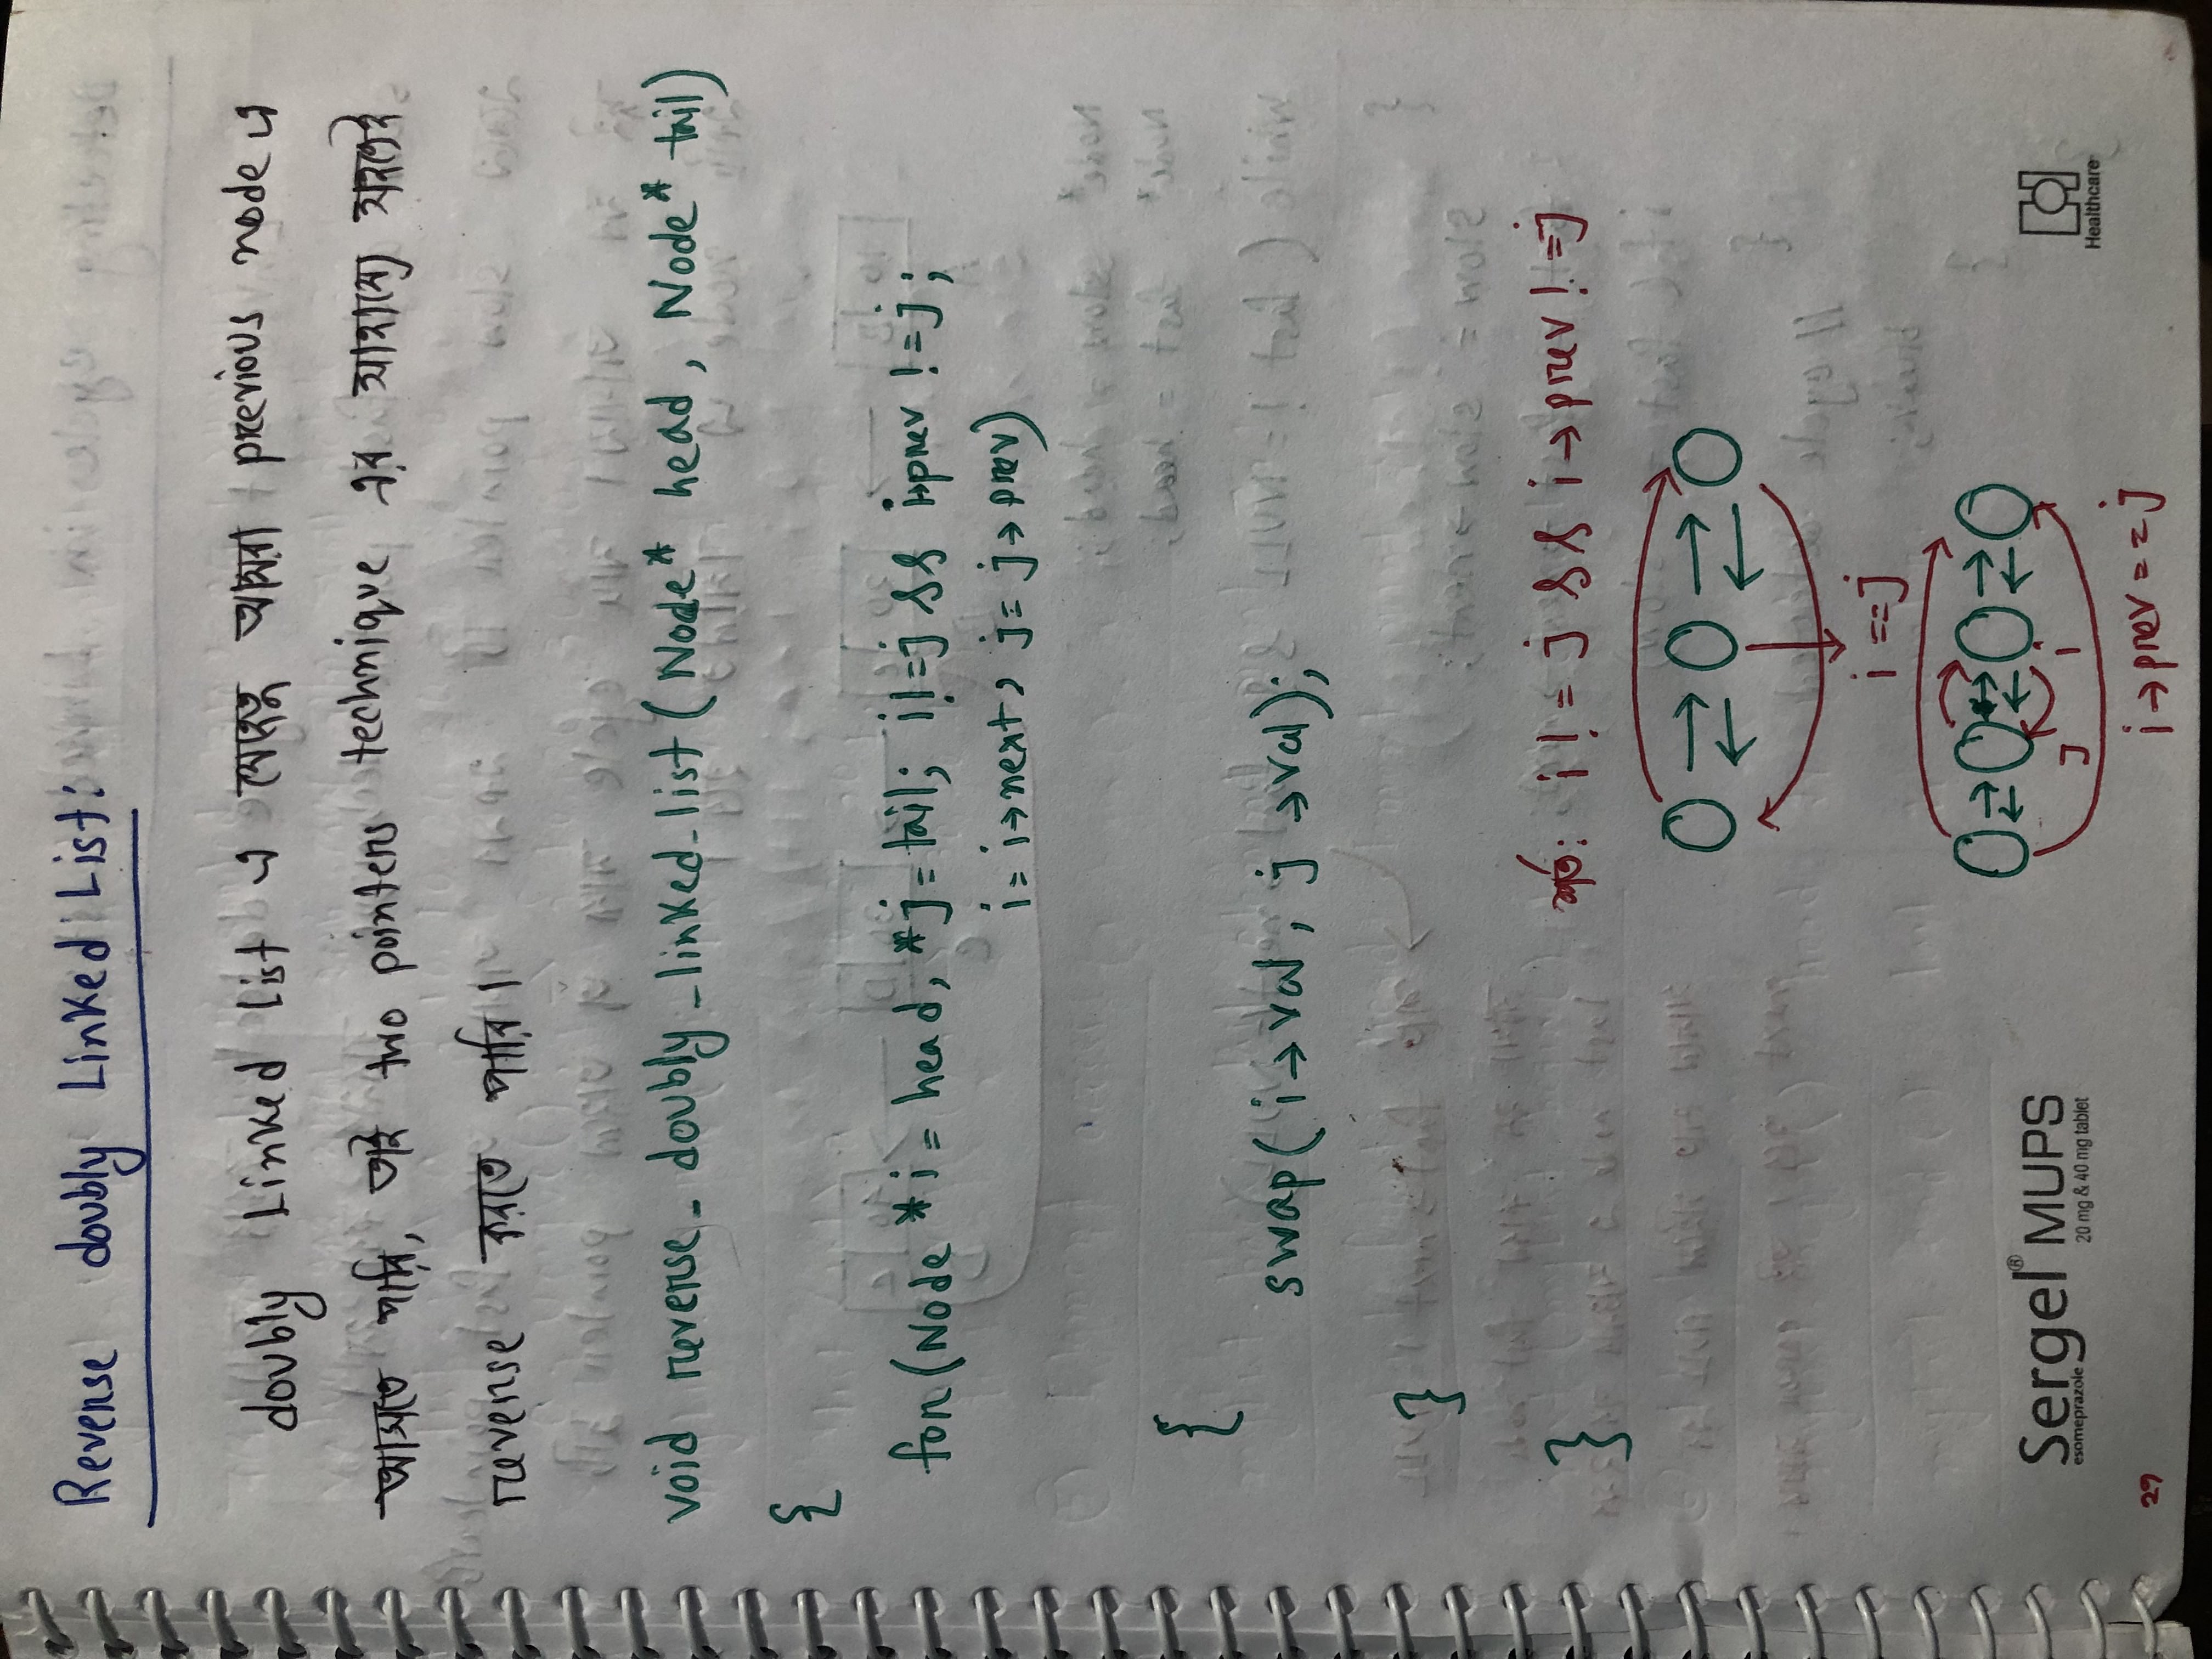 Reverse doubly Linked List:
doubly Linked List এ যেহেতু আমরা previous node এ
আসতে পারি, তাই two pointers technique এর সাহায্যে সহজেই
reverse করতে পারি।
void reverse_doubly_linked_list(Node* head, Node* tail)
{
for(Node *i = head, *j = tail; i != j && i->prev != j;
i = i->next, j = j->prev)
{
swap(i->val, j->val);
}
}
শর্ত: i != j && i->prev != j
i == j
j i
i->prev == j
Sergel® MUPS
esomeprazole 20 mg & 40 mg tablet
Healthcare
29